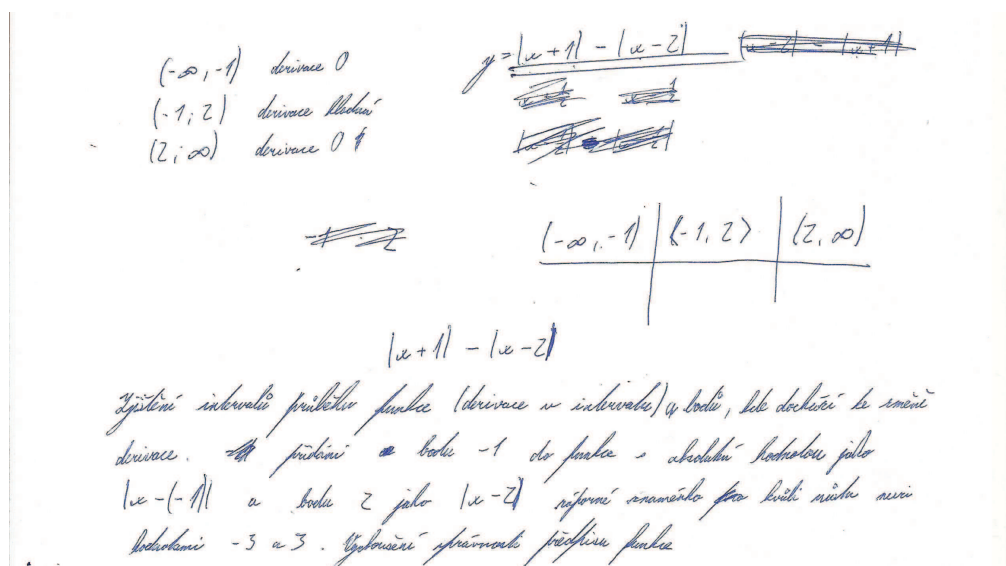 (-∞, -1) derivace 0
(-1; 2) derivace kladná
(2; ∞) derivace 0
y = |x+1| - |x-2|
(-∞, -1) | <-1, 2> | (2, ∞)
|x+1| - |x-2|
Zjištění intervalů průběhu funkce (derivace v intervalu) a bodů, kde dochází ke změně
derivace. přidání bodu -1 do funkce s absolutní hodnotou jako
|x-(-1)| a bodu 2 jako |x-2| záporné znaménko kvůli mezi
hodnotami -3 a 3. Vyzkoušení správnosti předpisu funkce